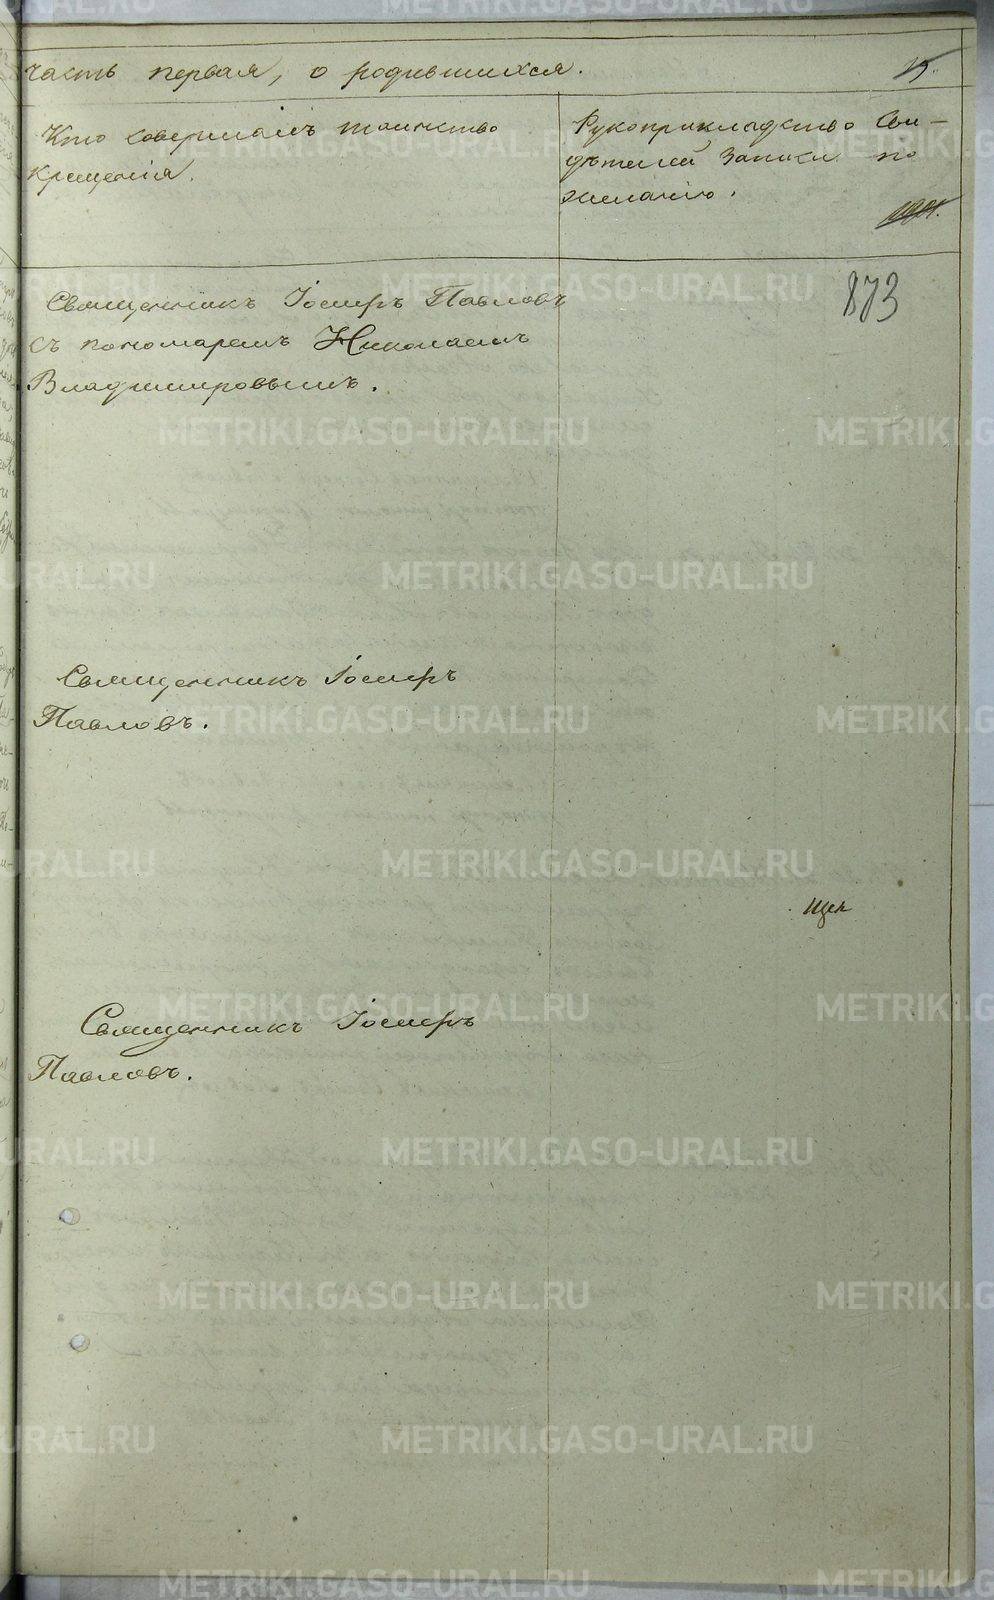 часть первая, о родившихся.
Кто совершалъ таинство
крещенія.
Рукоприкладство Сви-
дѣтелей записи по
желанію.
873
Священникъ Іосифъ Павловъ
съ пономаремъ Николаемъ
Владимировымъ.
Священникъ Іосифъ
Павловъ.
Священникъ Іосифъ
Павловъ.
METRIKI.GASO-URAL.RU